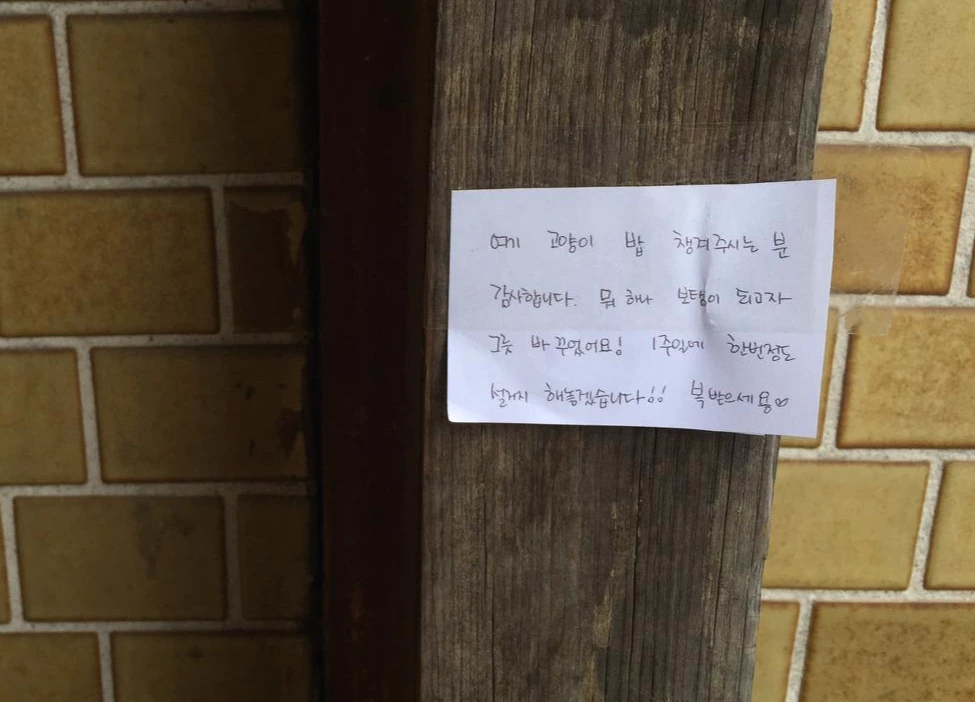 여기 고양이 밥 챙겨주시는 분
감사합니다. 뭐 하나 보탬이 되고자
그릇 바꾸었어요! 1주일에 한번정도
설거지 해놓겠습니다!! 복 받으세용♡